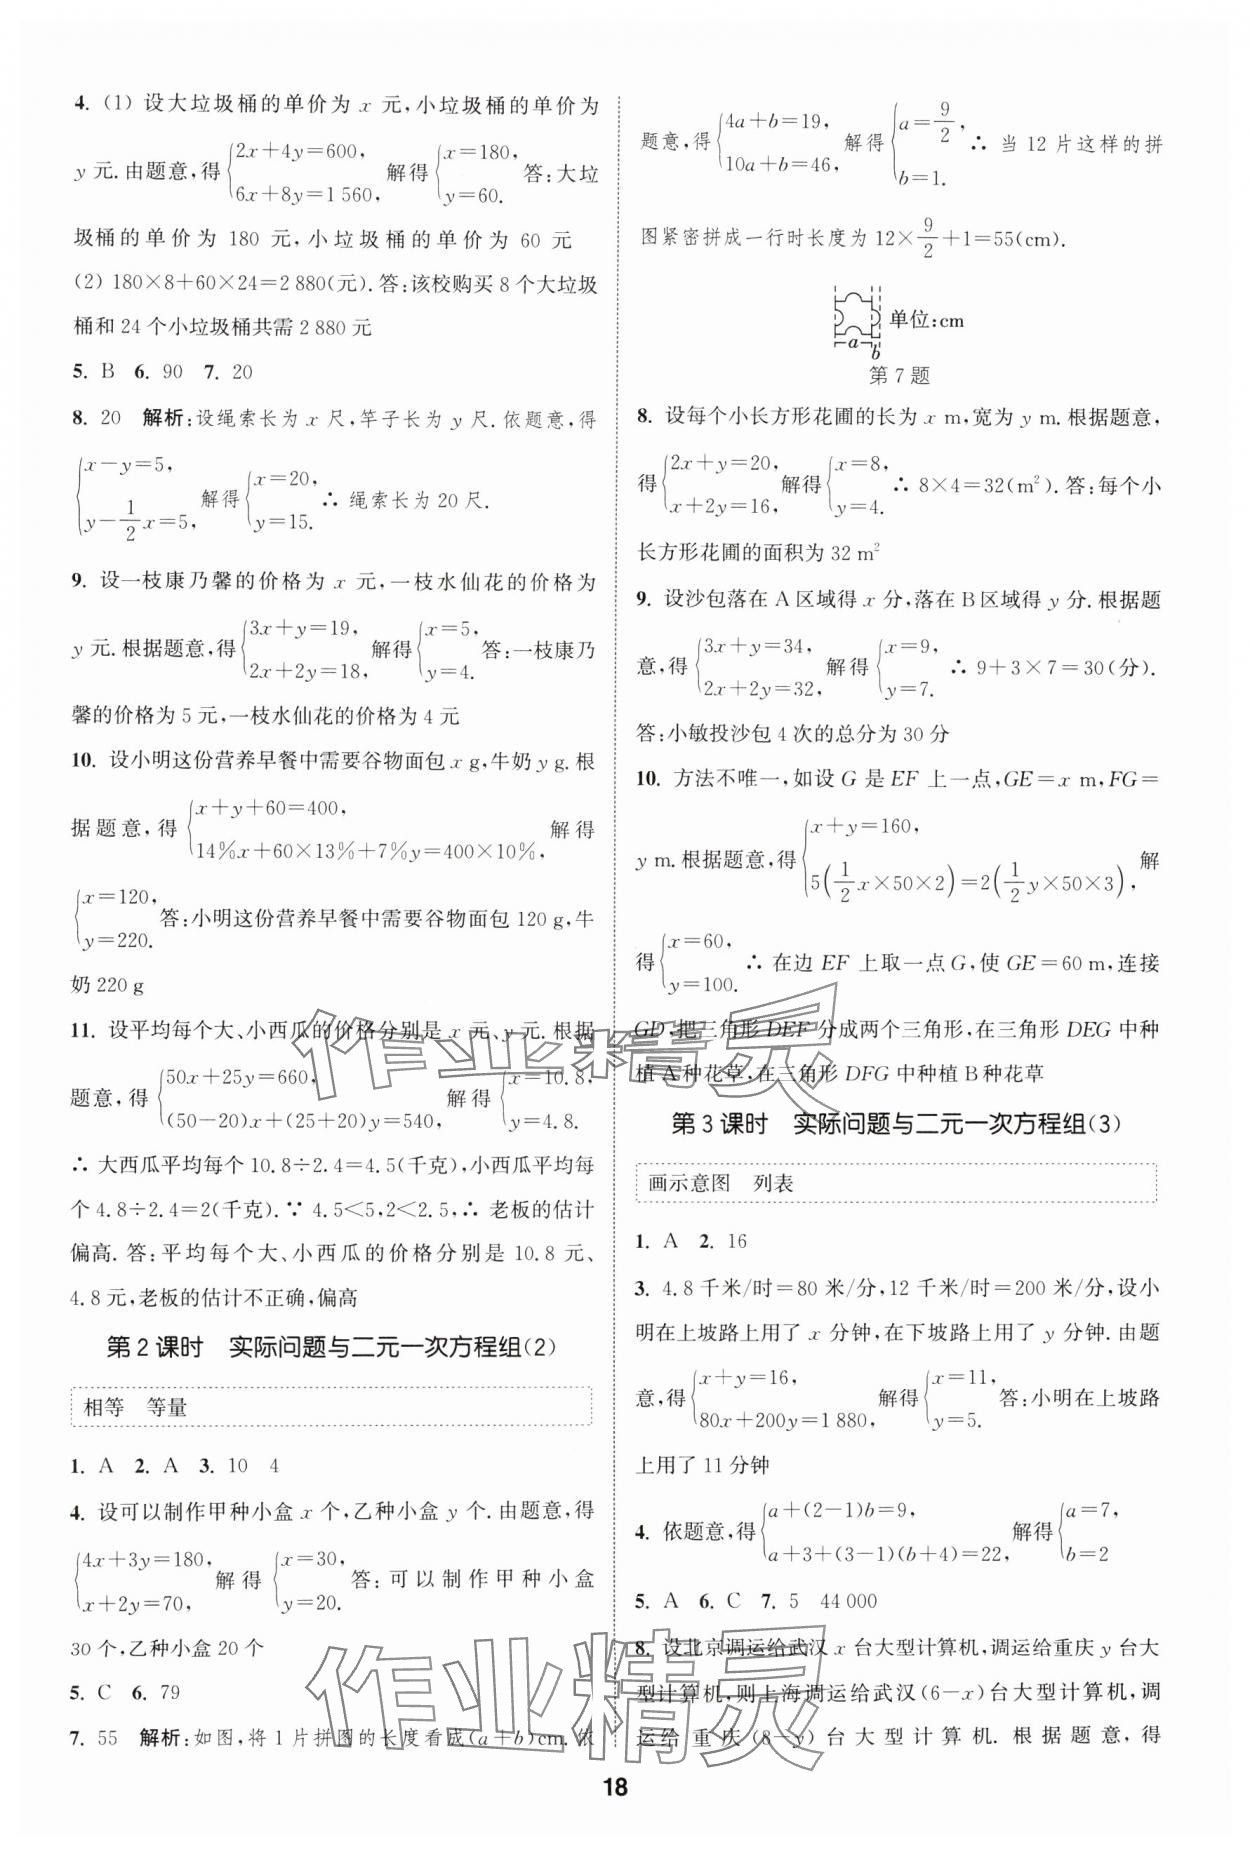 4. (1) 设大垃圾桶的单价为 x 元,小垃圾桶的单价为
y 元.由题意,得{2x+4y=600, 6x+8y=1 560, 解得{x=180, y=60. 答:大垃
圾桶的单价为 180 元,小垃圾桶的单价为 60 元
(2) 180×8+60×24=2 880(元).答:该校购买 8 个大垃圾
桶和 24 个小垃圾桶共需 2 880 元
5. B 6. 90 7. 20
8. 20 解析:设绳索长为 x 尺,竿子长为 y 尺.依题意,得
{x-y=5, y-1/2x=5, 解得{x=20, y=15. ∴ 绳索长为 20 尺.
9. 设一枝康乃馨的价格为 x 元,一枝水仙花的价格为
y 元.根据题意,得{3x+y=19, 2x+2y=18, 解得{x=5, y=4. 答:一枝康乃
馨的价格为 5 元,一枝水仙花的价格为 4 元
10. 设小明这份营养早餐中需要谷物面包 x g,牛奶 y g.根
据题意,得{x+y+60=400, 14%x+60×13%+7%y=400×10%, 解得
{x=120, y=220. 答:小明这份营养早餐中需要谷物面包 120 g,牛
奶 220 g
11. 设平均每个大、小西瓜的价格分别是 x 元、y 元.根据
题意,得{50x+25y=660, (50-20)x+(25+20)y=540, 解得{x=10.8, y=4.8.
∴ 大西瓜平均每个 10.8÷2.4=4.5(千克),小西瓜平均每
个 4.8÷2.4=2(千克).∵ 4.5<5,2<2.5,∴ 老板的估计
偏高.答:平均每个大、小西瓜的价格分别是 10.8 元、
4.8 元,老板的估计不正确,偏高
第 2 课时 实际问题与二元一次方程组(2)
相等 等量
1. A 2. A 3. 10 4
4. 设可以制作甲种小盒 x 个,乙种小盒 y 个.由题意,得
{4x+3y=180, x+2y=70, 解得{x=30, y=20. 答:可以制作甲种小盒
30 个,乙种小盒 20 个
5. C 6. 79
7. 55 解析:如图,将 1 片拼图的长度看成(a+b)cm.依
题意,得{4a+b=19, 10a+b=46, 解得{a=9/2, b=1. ∴ 当 12 片这样的拼
图紧密拼成一行时长度为 12×9/2+1=55(cm).
单位:cm
a b
第 7 题
8. 设每个小长方形花圃的长为 x m,宽为 y m.根据题意,
得{2x+y=20, x+2y=16, 解得{x=8, y=4. ∴ 8×4=32(m²).答:每个小
长方形花圃的面积为 32 m²
9. 设沙包落在 A 区域得 x 分,落在 B 区域得 y 分.根据题
意,得{3x+y=34, 2x+2y=32, 解得{x=9, y=7. ∴ 9+3×7=30(分).
答:小敏投沙包 4 次的总分为 30 分
10. 方法不唯一,如设 G 是 EF 上一点,GE=x m,FG=
y m.根据题意,得{x+y=160, 5(1/2x×50×2)=2(1/2y×50×3), 解
得{x=60, y=100. ∴ 在边 EF 上取一点 G,使 GE=60 m,连接
GD,把三角形 DEF 分成两个三角形,在三角形 DEG 中种
植 A 种花草,在三角形 DFG 中种植 B 种花草
第 3 课时 实际问题与二元一次方程组(3)
画示意图 列表
1. A 2. 16
3. 4.8 千米/时=80 米/分,12 千米/时=200 米/分,设小
明在上坡路上用了 x 分钟,在下坡路上用了 y 分钟.由题
意,得{x+y=16, 80x+200y=1 880, 解得{x=11, y=5. 答:小明在上坡路
上用了 11 分钟
4. 依题意,得{a+(2-1)b=9, a+3+(3-1)(b+4)=22, 解得{a=7, b=2
5. A 6. C 7. 5 44 000
8. 设北京调运给武汉 x 台大型计算机,调运给重庆 y 台大
型计算机,则上海调运给武汉(6-x)台大型计算机,调
运给重庆(8-y)台大型计算机.根据题意,得
作业精灵
作业精灵
18